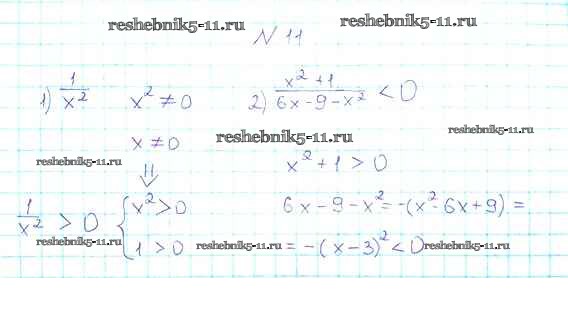 reshebnik5-11.ru
reshebnik5-11.ru
N 11
1) 1/x² x² ≠ 0
2) (x² + 1)/(6x - 9 - x²) < 0
x ≠ 0
reshebnik5-11.ru
reshebnik5-11.ru
reshebnik5-11.ru
⇓
x² + 1 > 0
1/x² > 0 { x² > 0
1 > 0
6x - 9 - x² = -(x² - 6x + 9) =
= -(x - 3)² < 0
reshebnik5-11.ru
reshebnik5-11.ru
reshebnik5-11.ru